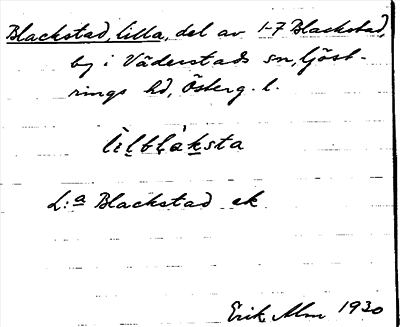 Blackstad, lilla, del av 1-7 Blackstad,
by i Väderstads sn, Göst-
rings hd, Österg. l.
lìlblàksta
L:a Blackstad ek
Erik Alm 1930